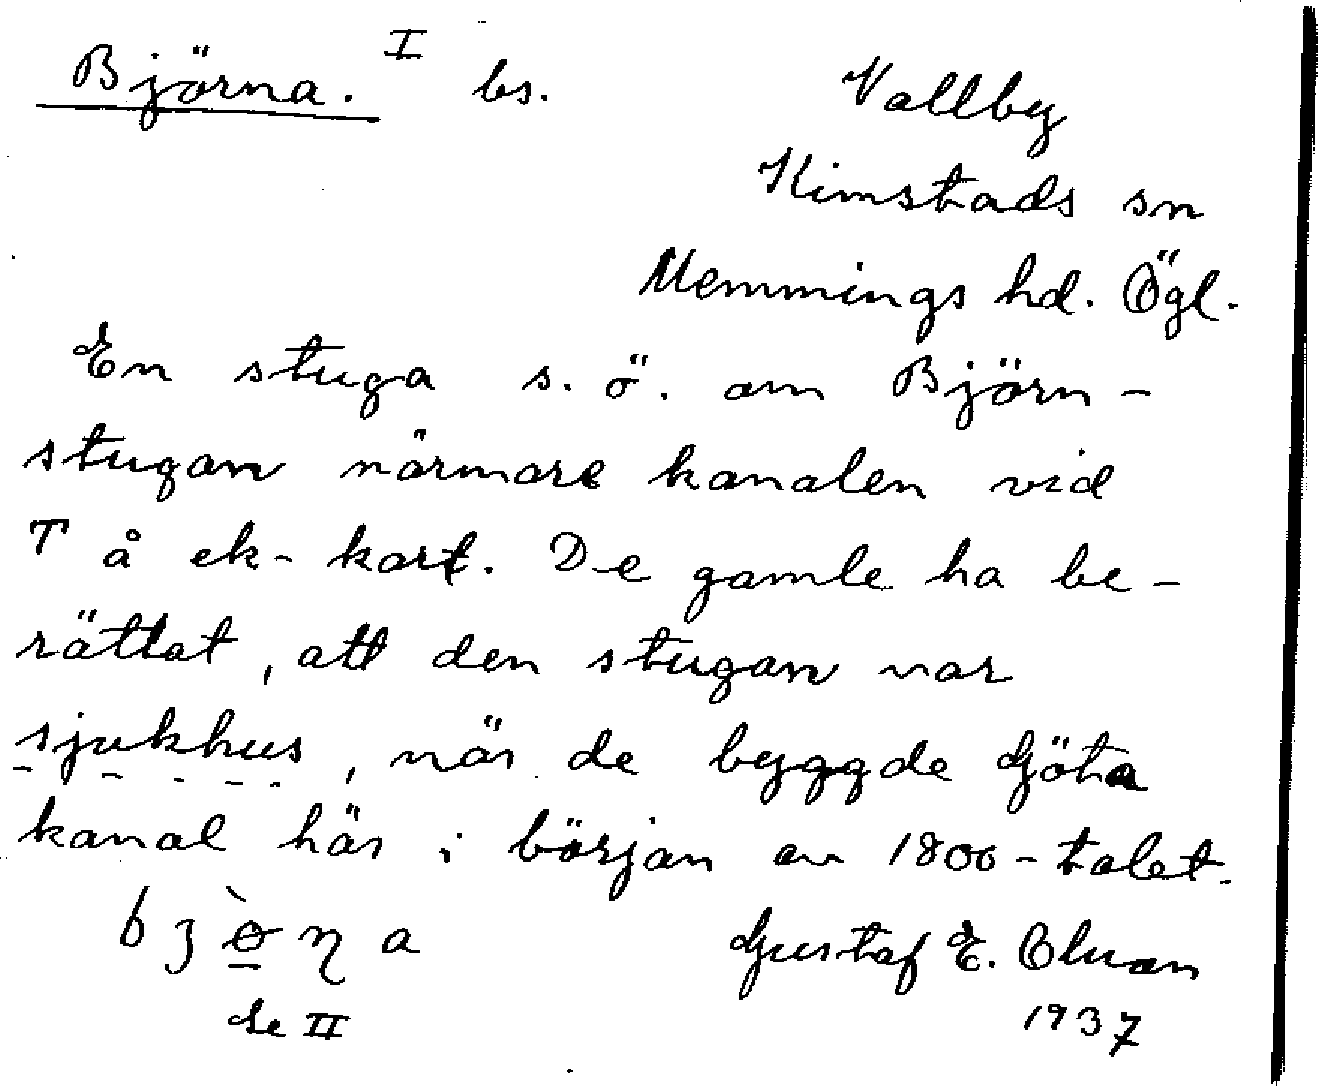 Björna. I bs. Vallby
Kimstads sn
Memmings hd. Ögl.
En stuga s. ö. om Björn-
stugan närmare kanalen vid
T å ek-kart. De gamle ha be-
rättat, att den stugan var
sjukhus, när de byggde Göta
kanal här i början av 1800-talet.
Gustaf E.
Se II 1937